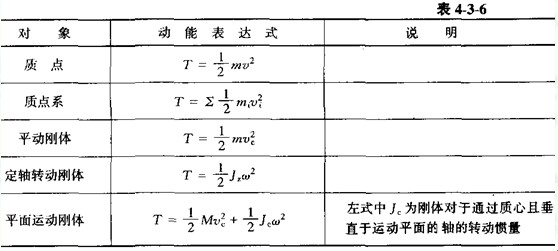 表 4-3-6
对 象 动 能 表 达 式 说 明
质 点 T = 1/2 mv²
质点系 T = Σ 1/2 mᵢvᵢ²
平动刚体 T = 1/2 mv_c²
定轴转动刚体 T = 1/2 J_zω²
平面运动刚体 T = 1/2 Mv_c² + 1/2 J_cω² 左式中 J_c 为刚体对于通过质心且垂
直于运动平面的轴的转动惯量